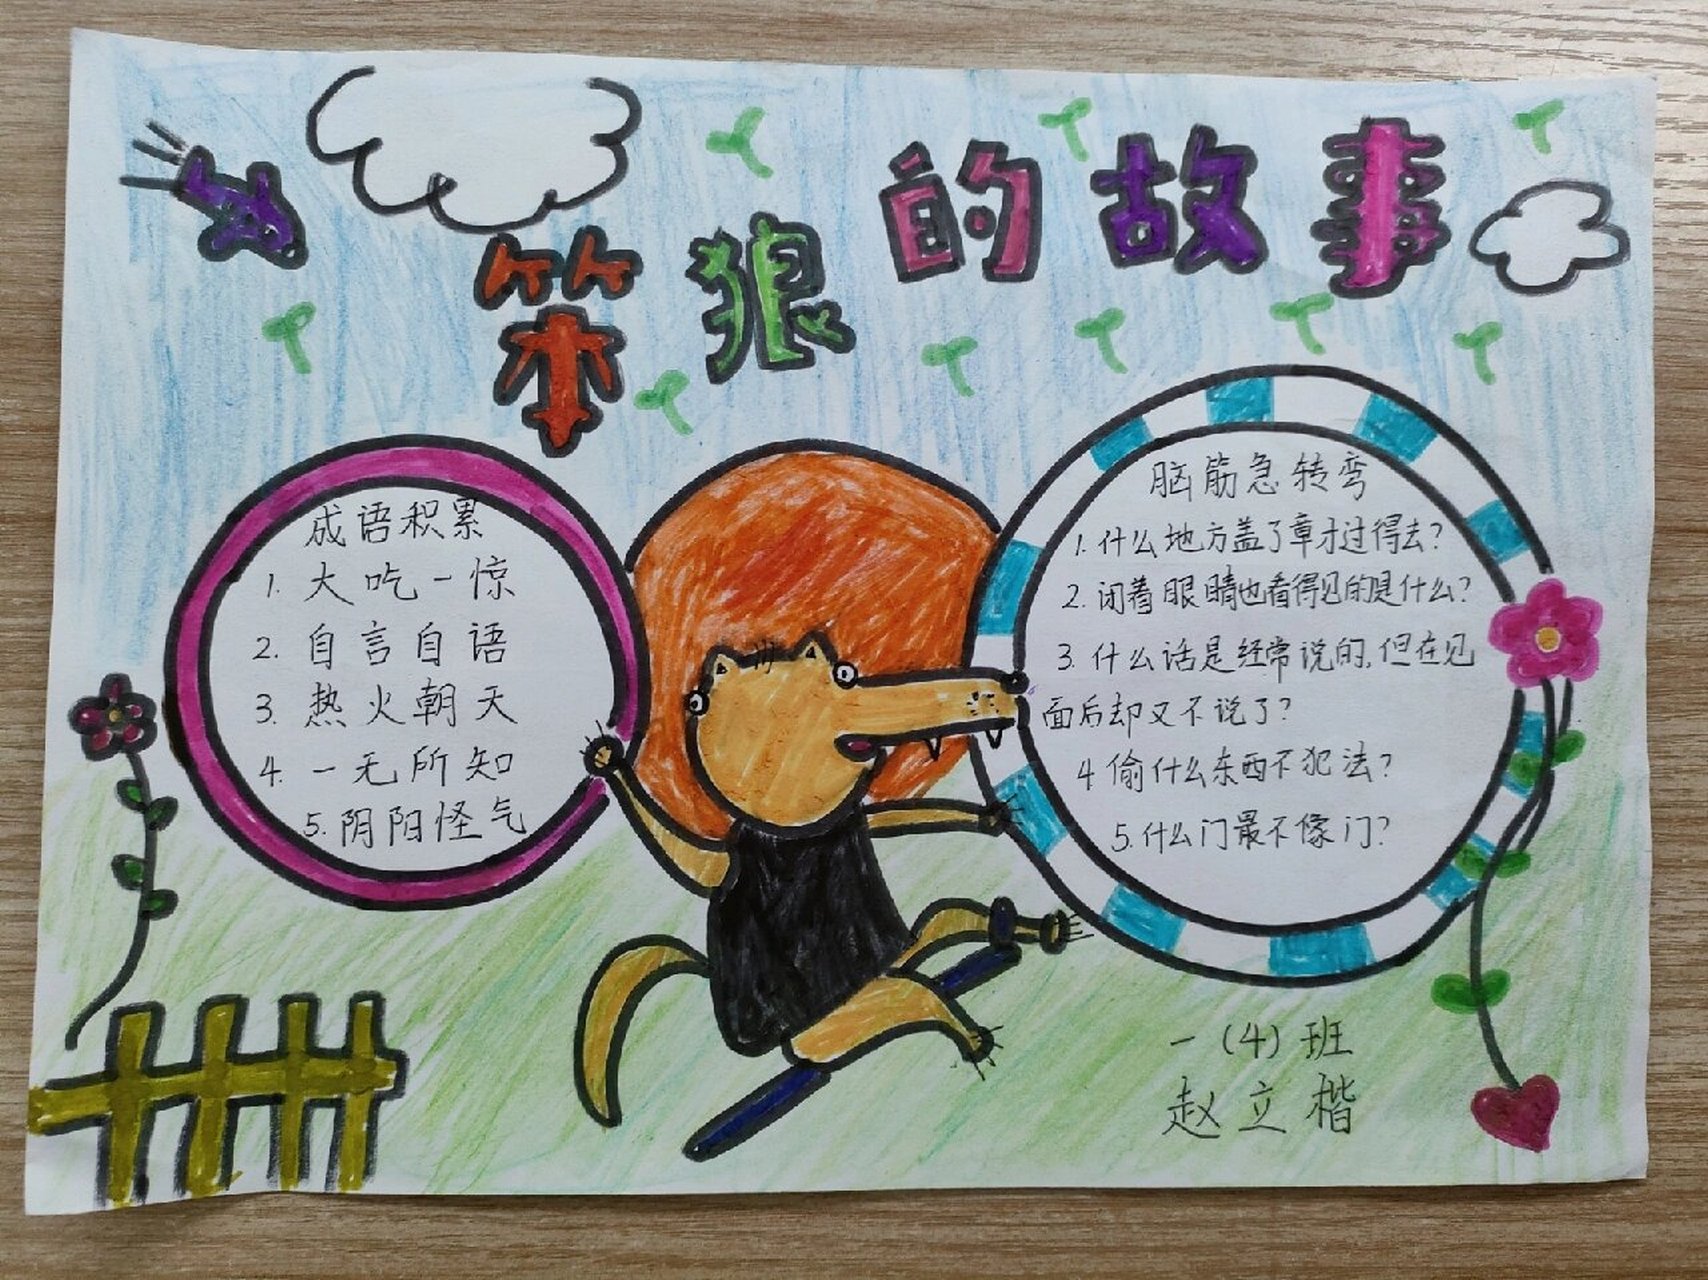 笨狼的故事
成语积累
1. 大吃一惊
2. 自言自语
3. 热火朝天
4. 一无所知
5. 阴阳怪气
脑筋急转弯
1. 什么地方盖了章才过得去?
2. 闭着眼睛也看得见的是什么?
3. 什么话是经常说的,但在见
面后却又不说了?
4 偷什么东西不犯法?
5. 什么门最不像门?
一(4)班
赵立楷